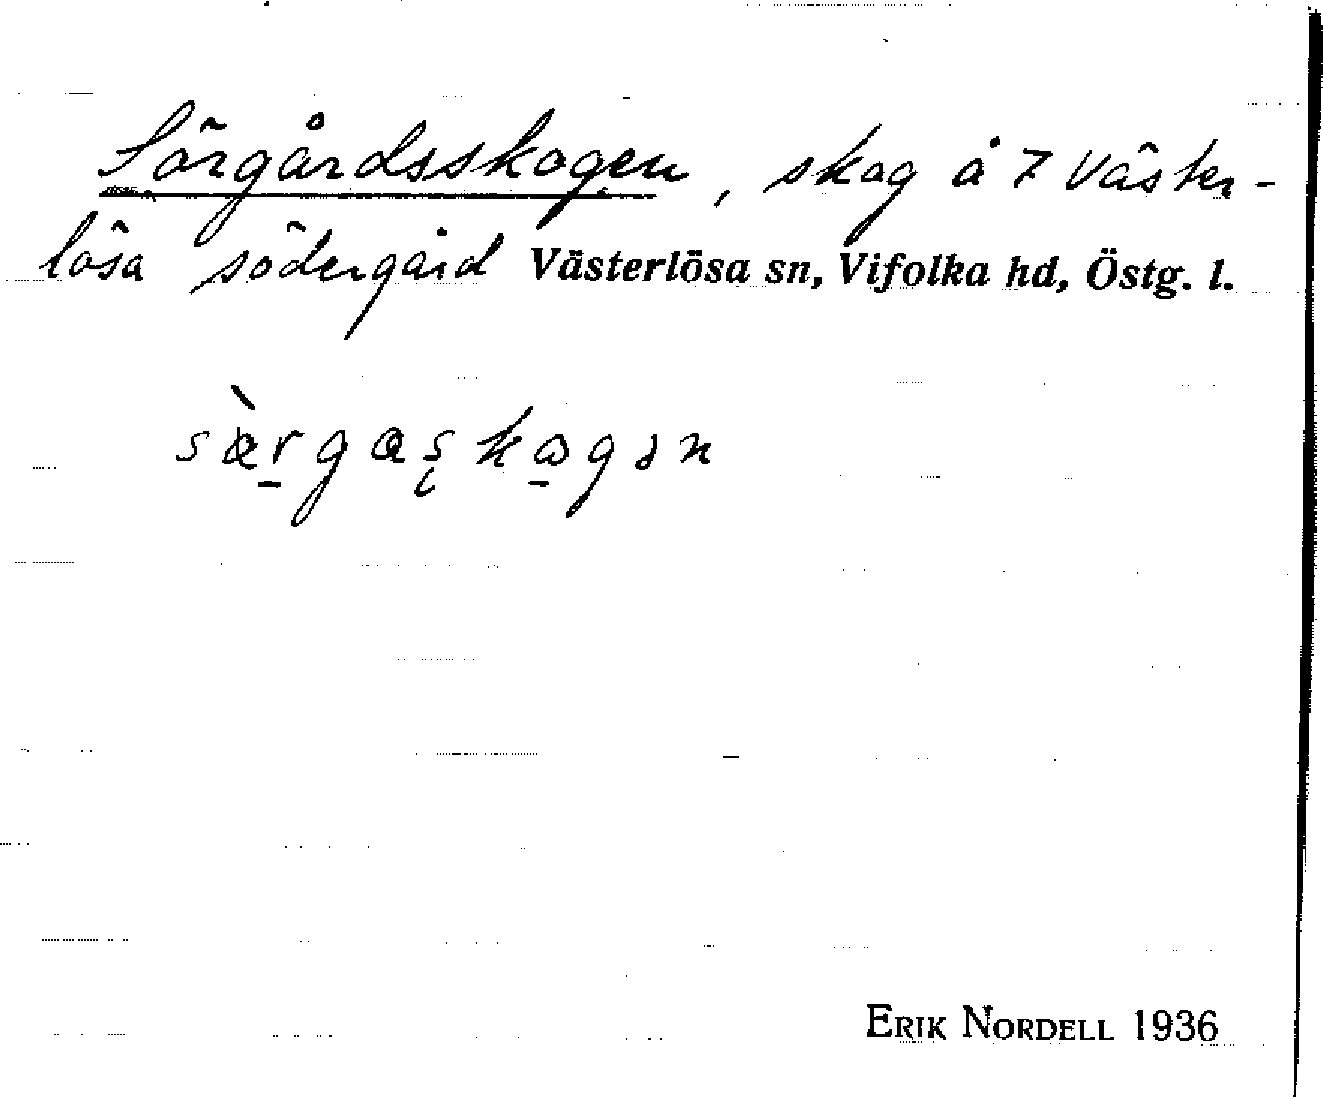 Sörgårdsskogen, skog å 7 Väster-
lösa södergård Västerlösa sn, Vifolka hd, Östg. l.
ERIK NORDELL 1936